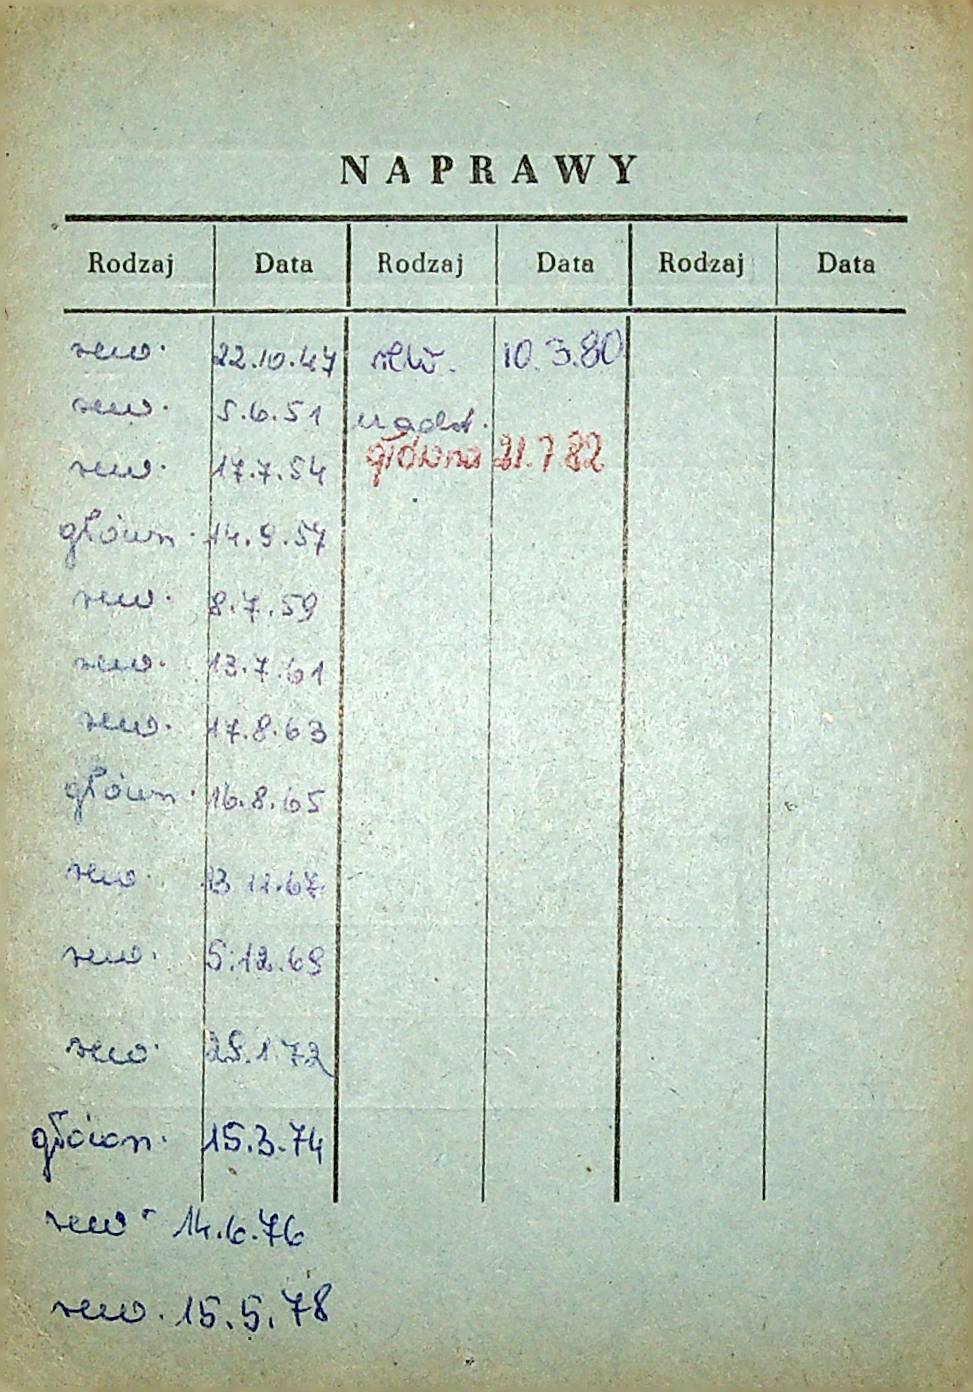 NAPRAWY
Rodzaj Data Rodzaj Data Rodzaj Data
rew. 22.10.47 rew. 10.3.80
rew. 5.6.51 nadst.
główna 21.7 82
rew. 17.7.54
główn. 14.9.57
rew. 8.7.59
rew. 13.7.61
rew. 17.8.63
główn. 16.8.65
rew. 13 11.67
rew. 5.12.69
rew. 1.72
główn. 15.3.74
rew. 14.6.76
rew. 15.5.78